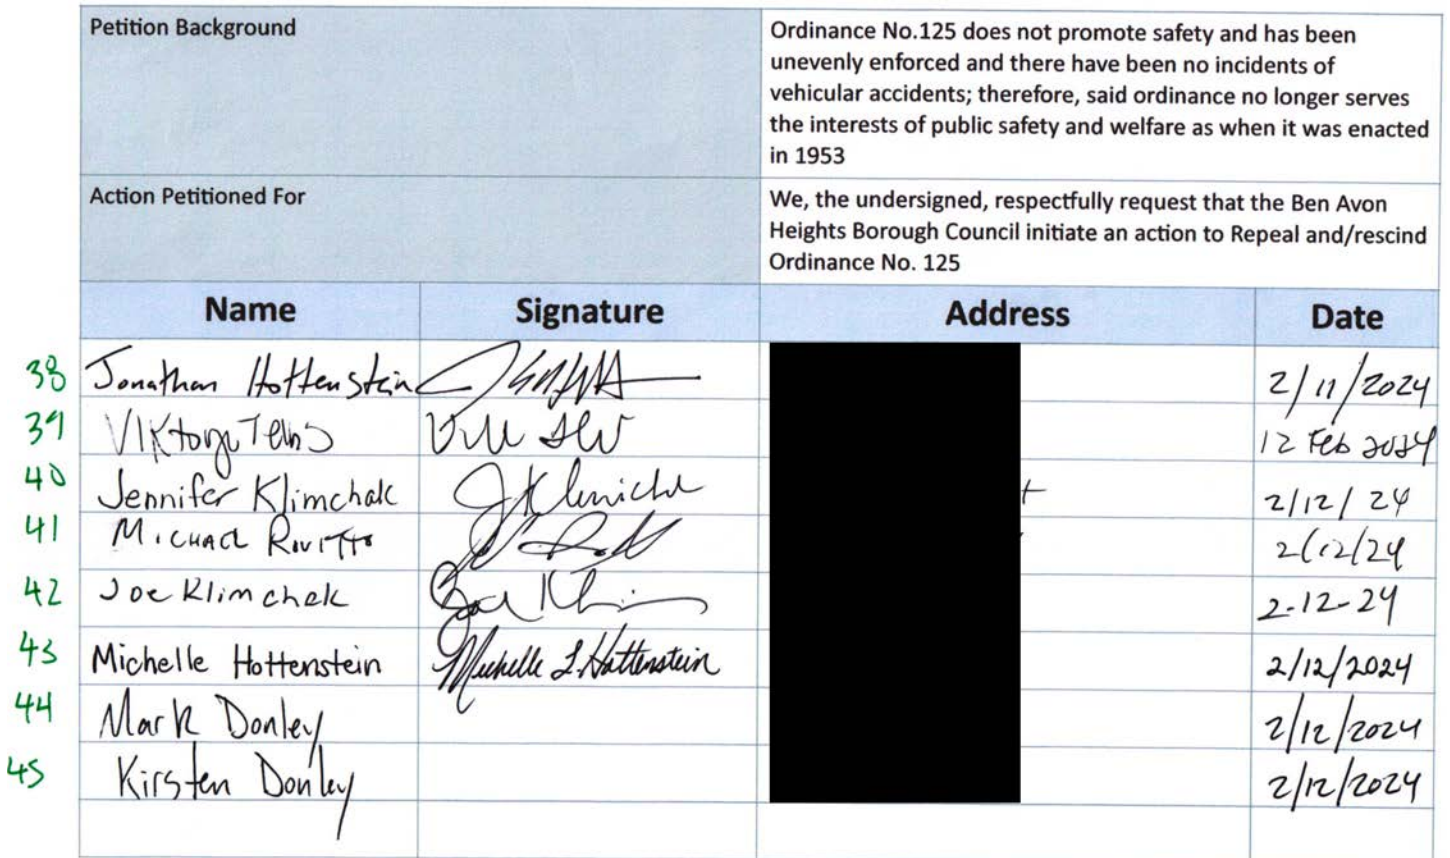 Petition Background
Ordinance No.125 does not promote safety and has been
unevenly enforced and there have been no incidents of
vehicular accidents; therefore, said ordinance no longer serves
the interests of public safety and welfare as when it was enacted
in 1953
Action Petitioned For
We, the undersigned, respectfully request that the Ben Avon
Heights Borough Council initiate an action to Repeal and/rescind
Ordinance No. 125
Name Signature Address Date
38 Jonathan Hottenstein 2/11/2024
39 12 Feb 2024
40 Jennifer Klimchak 2/12/24
41 Michael 2/12/24
42 Joe Klimchak 2-12-24
43 Michelle Hottenstein Michelle L. Hottenstein 2/12/2024
44 Mark Donley 2/12/2024
45 Kirsten Donley 2/12/2024